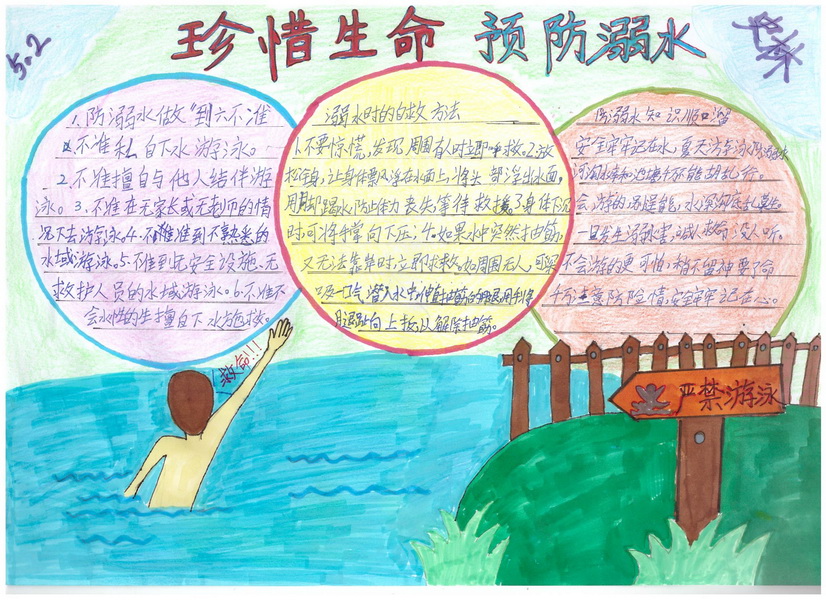 珍惜生命 预防溺水
5.2
1.防溺水做"到六不准
不准私自下水游泳。
2.不准擅自与他人结伴游
泳。3.不准在无家长或无老师的情
况下去游泳。4.不准到不熟悉的
水域游泳。5.不准到无安全设施、无
救护人员的水域游泳。6.不准不
会水性的生擅自下水施救。
溺水时的自救方法
1.不要惊慌,发现周围有人时立即呼救。2.放
松全身,让身体飘浮在水面上,将头部浮出水面,
用脚踢水,防止体力丧失,等待救援。3.身体下沉
时,可将手掌向下压;4.如果水中突然抽筋,
又无法靠岸时,立即求救。如周围无人,可深
吸一口气潜入水中,伸直抽筋的
腿,向上扳,以解除抽筋。
防溺水知识顺口溜
安全牢记在水,夏天游泳
一旦发生溺水害,喊救命没人听。
不会游的更可怕,稍不留神要了命
千万注意防险情,安全牢牢记在心。
救命!!!
严禁游泳